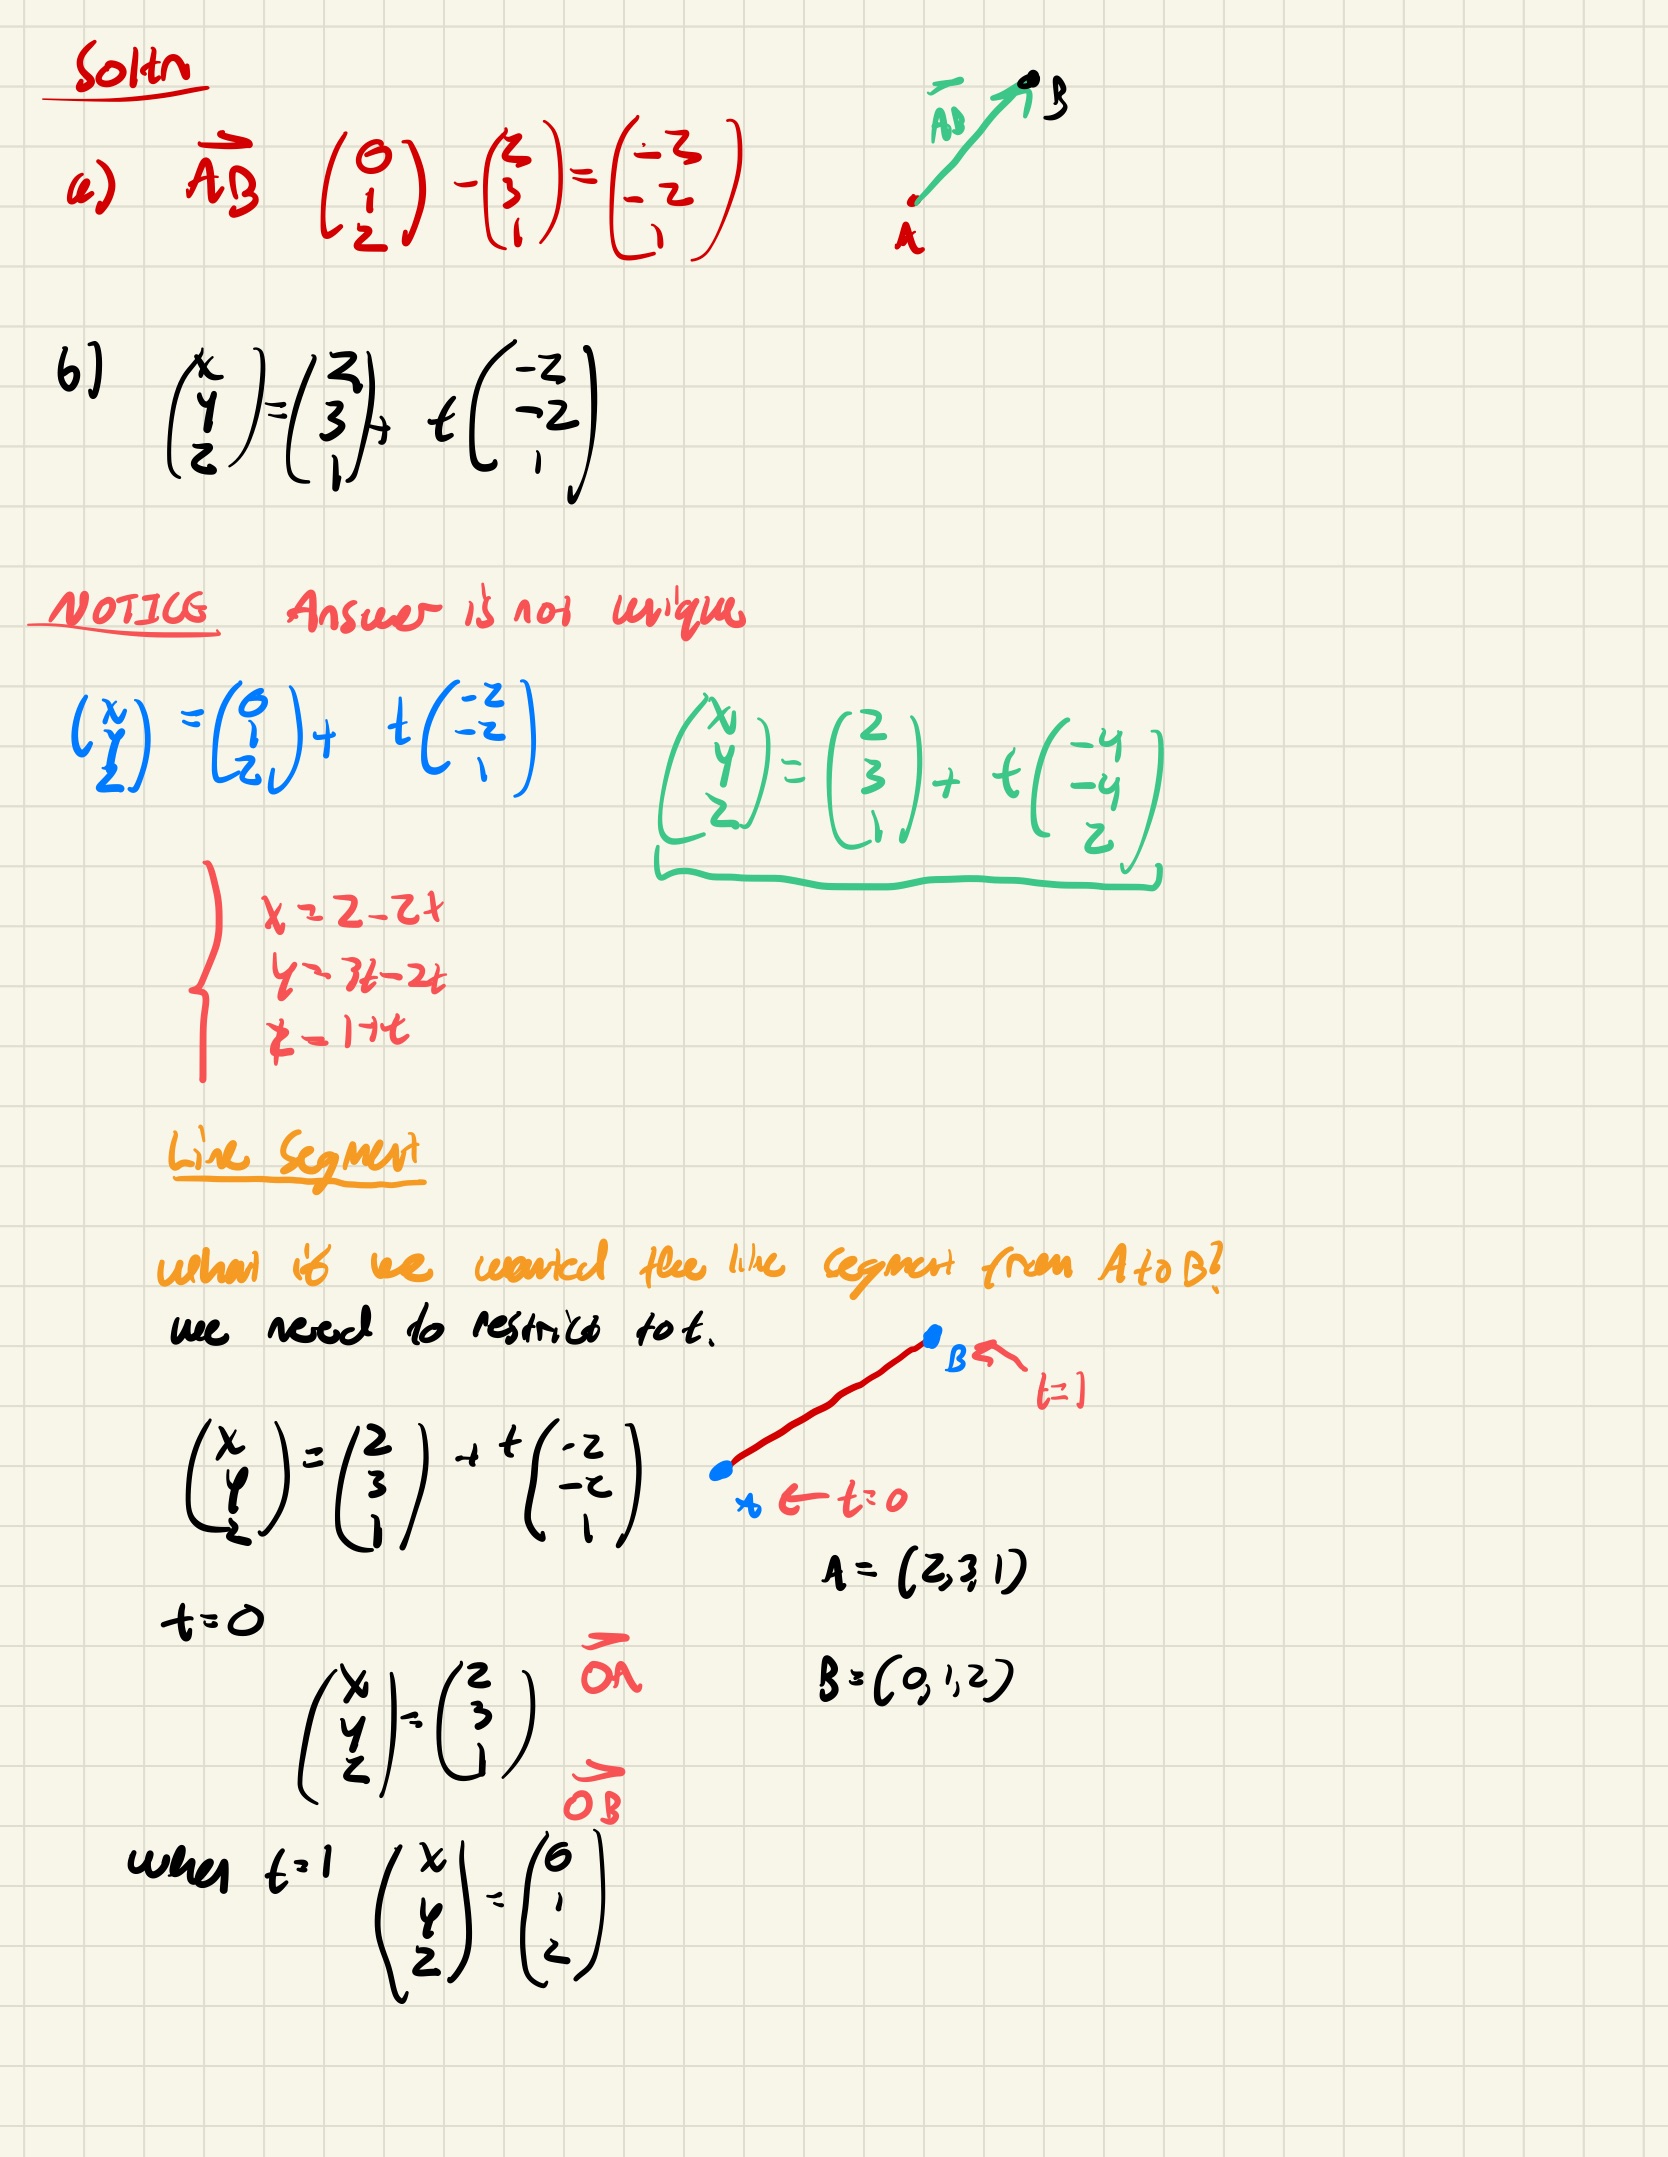 Soltn
a) AB (0 1 2) - (2 3 1) = (-2 -2 1)
AB
B
A
b) (x y z) = (2 3 1) + t (-2 -2 1)
NOTICE Answer is not unique
(x y z) = (0 1 2) + t (-2 -2 1)
(x y z) = (2 3 1) + t (-4 -4 2)
x = 2 - 2t
y = 3t - 2t
z = 1+t
Line Segment
what if we wanted the line segment from A to B?
we need to restrict to t.
B ← t=1
A ← t=0
(x y z) = (2 3 1) + t (-2 -2 1)
A = (2,3,1)
t=0
B = (0,1,2)
(x y z) = (2 3 1) OA
OB
when t=1 (x y z) = (0 1 2)